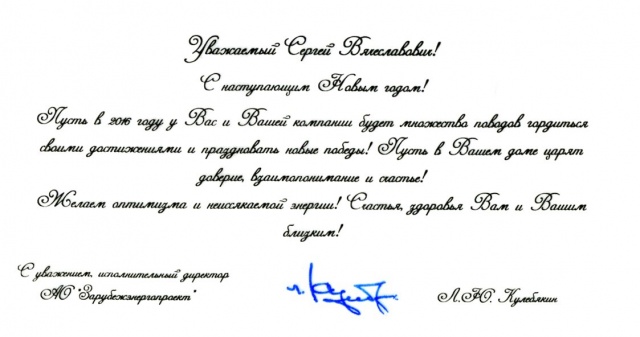 Уважаемый Сергей Вячеславович!
С наступающим Новым годом!
Пусть в 2016 году у Вас и Вашей компании будет множество поводов гордиться
своими достижениями и праздновать новые победы! Пусть в Вашем доме царят
доверие, взаимопонимание и счастье!
Желаем оптимизма и неиссякаемой энергии! Счастья, здоровья Вам и Вашим
близким!
С уважением, исполнительный директор
АО "Зарубежэнергопроект"
Л.Ю. Кулебякин